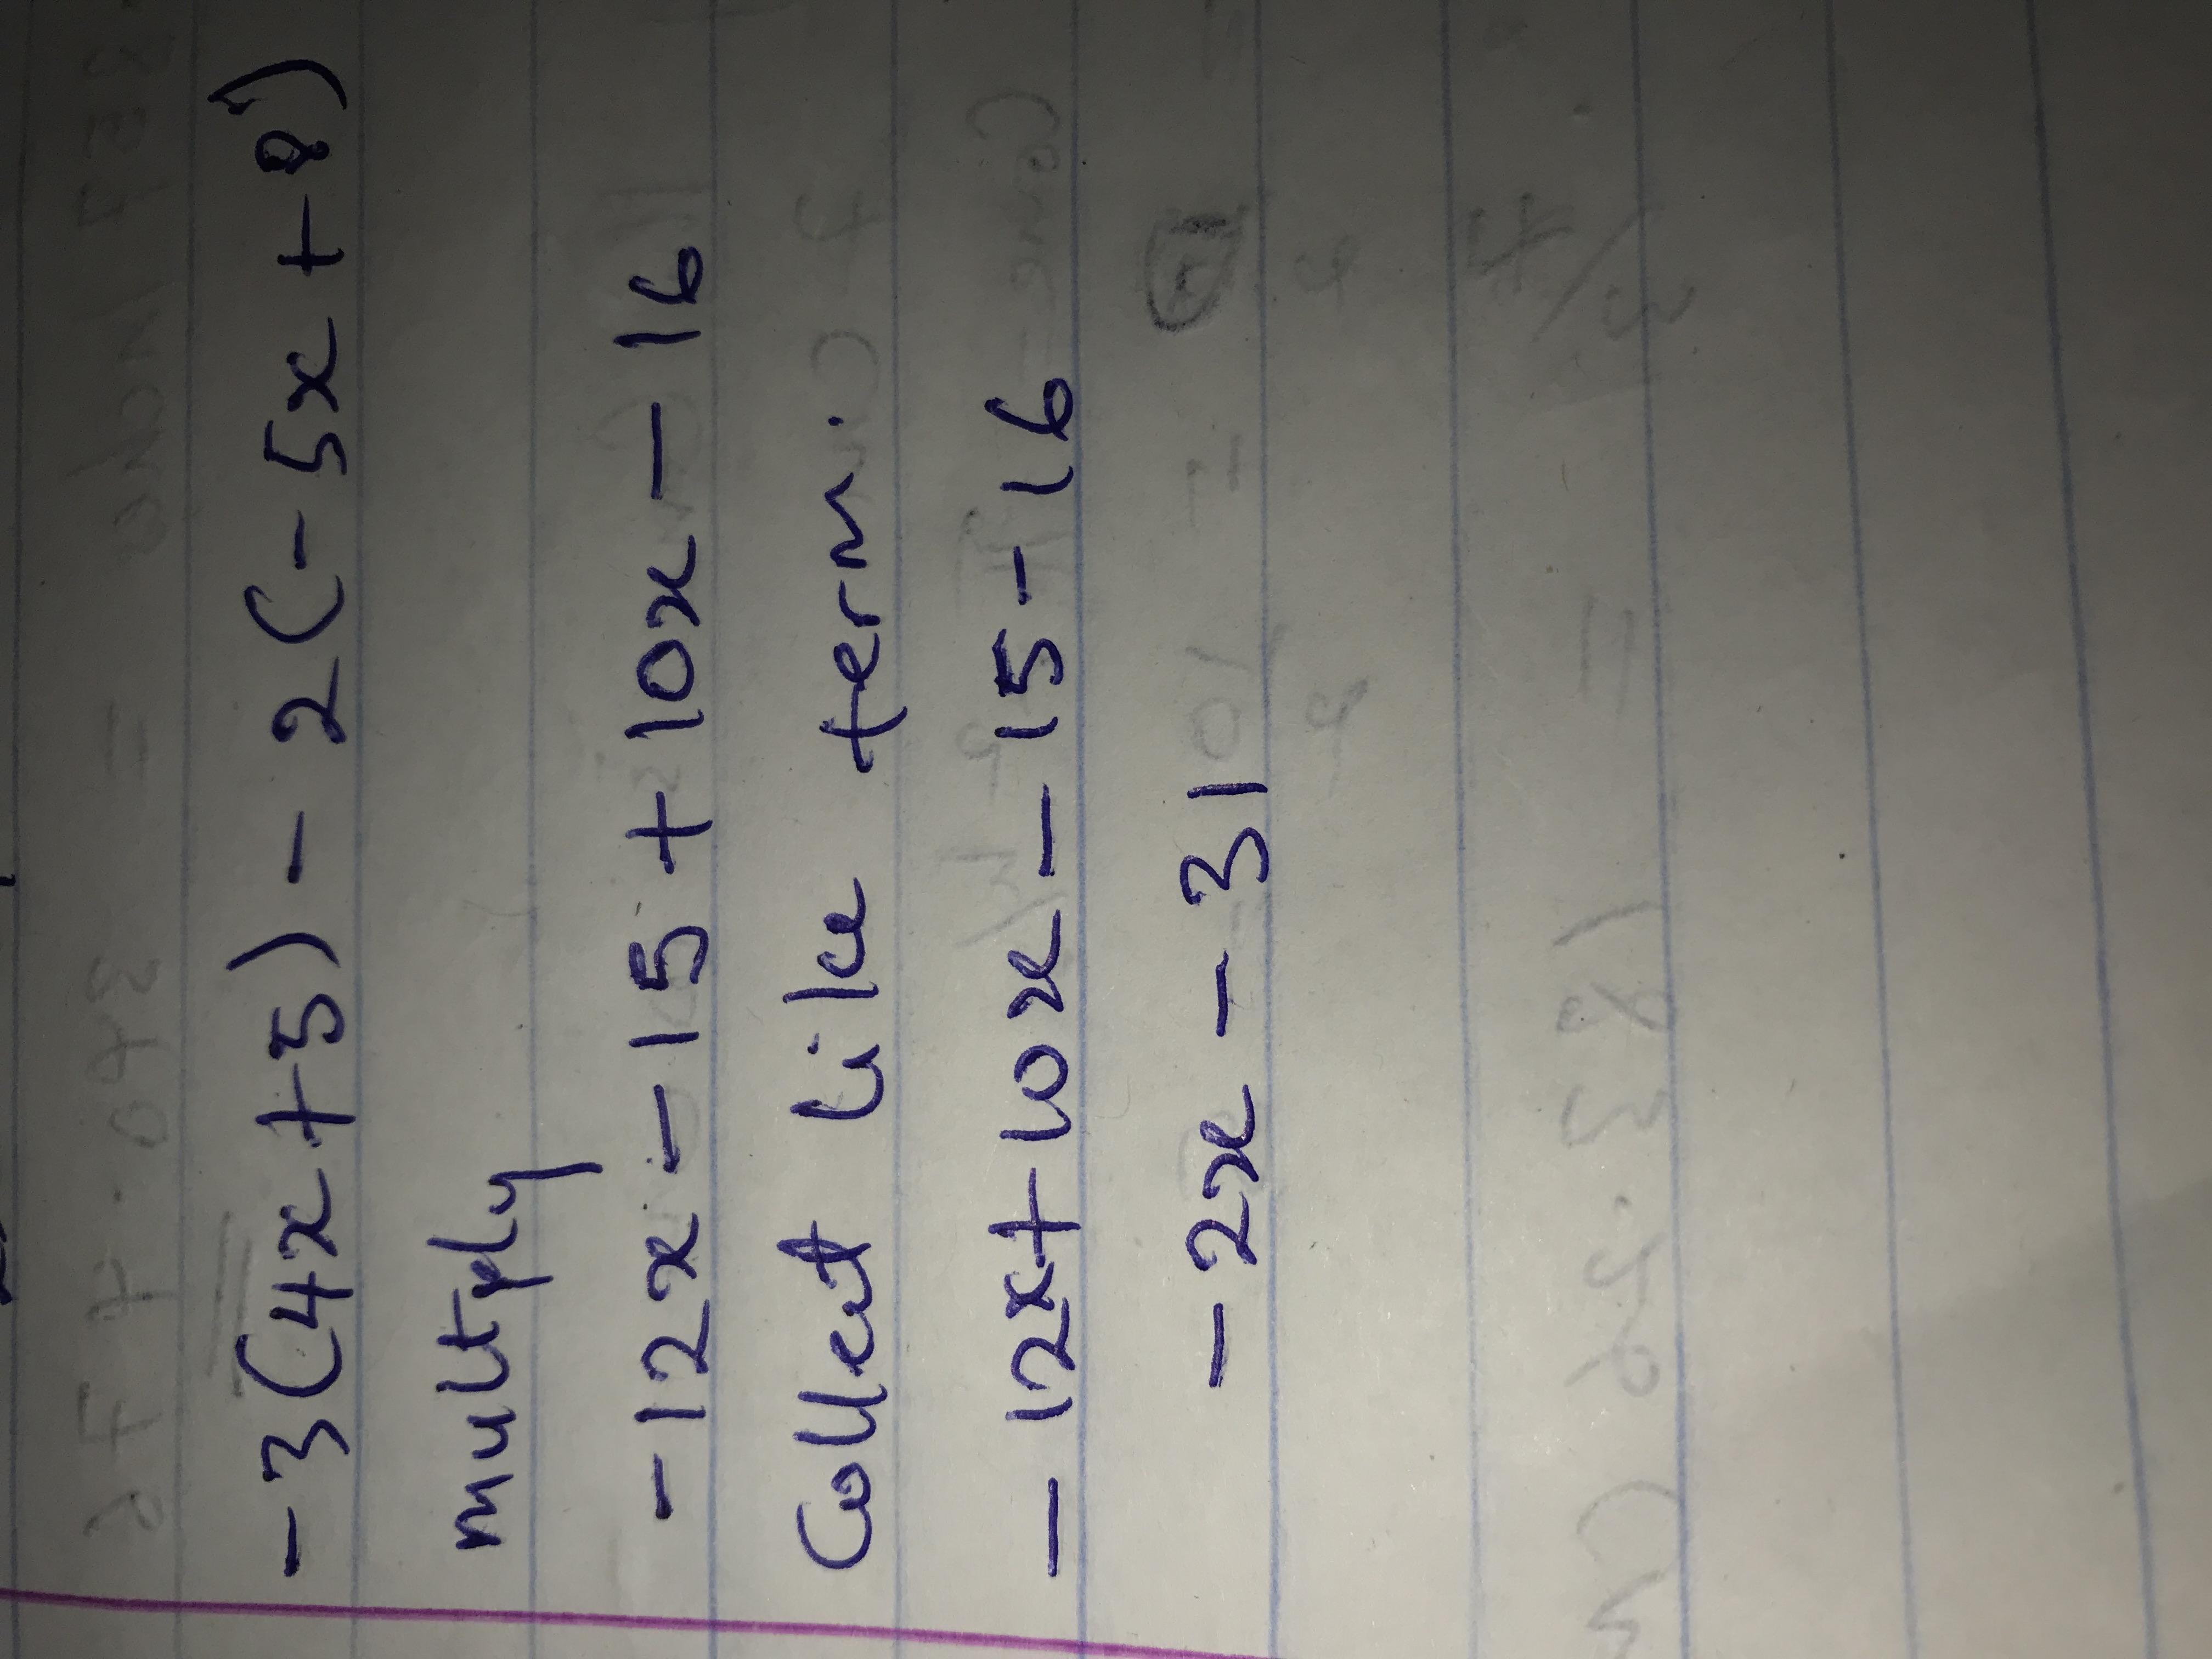 -3(4x+5) - 2(-5x+8)
multiply
-12x-15+10x-16
Collect like term.
-12x+10x-15-16
-2x-31